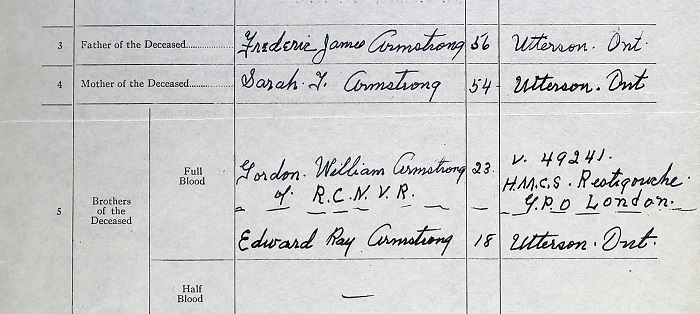 3 Father of the Deceased.............. Frederic James Armstrong 56 Utterson. Ont.
4 Mother of the Deceased.............. Sarah. J. Armstrong 54 Utterson. Ont
5 Brothers of the Deceased
Full Blood
Gordon. William Armstrong 23. V. 49241.
of R.C.N.V.R. H.M.C.S. Restigouche.
G.P.O London.
Edward Ray Armstrong 18 Utterson. Ont.
Half Blood —